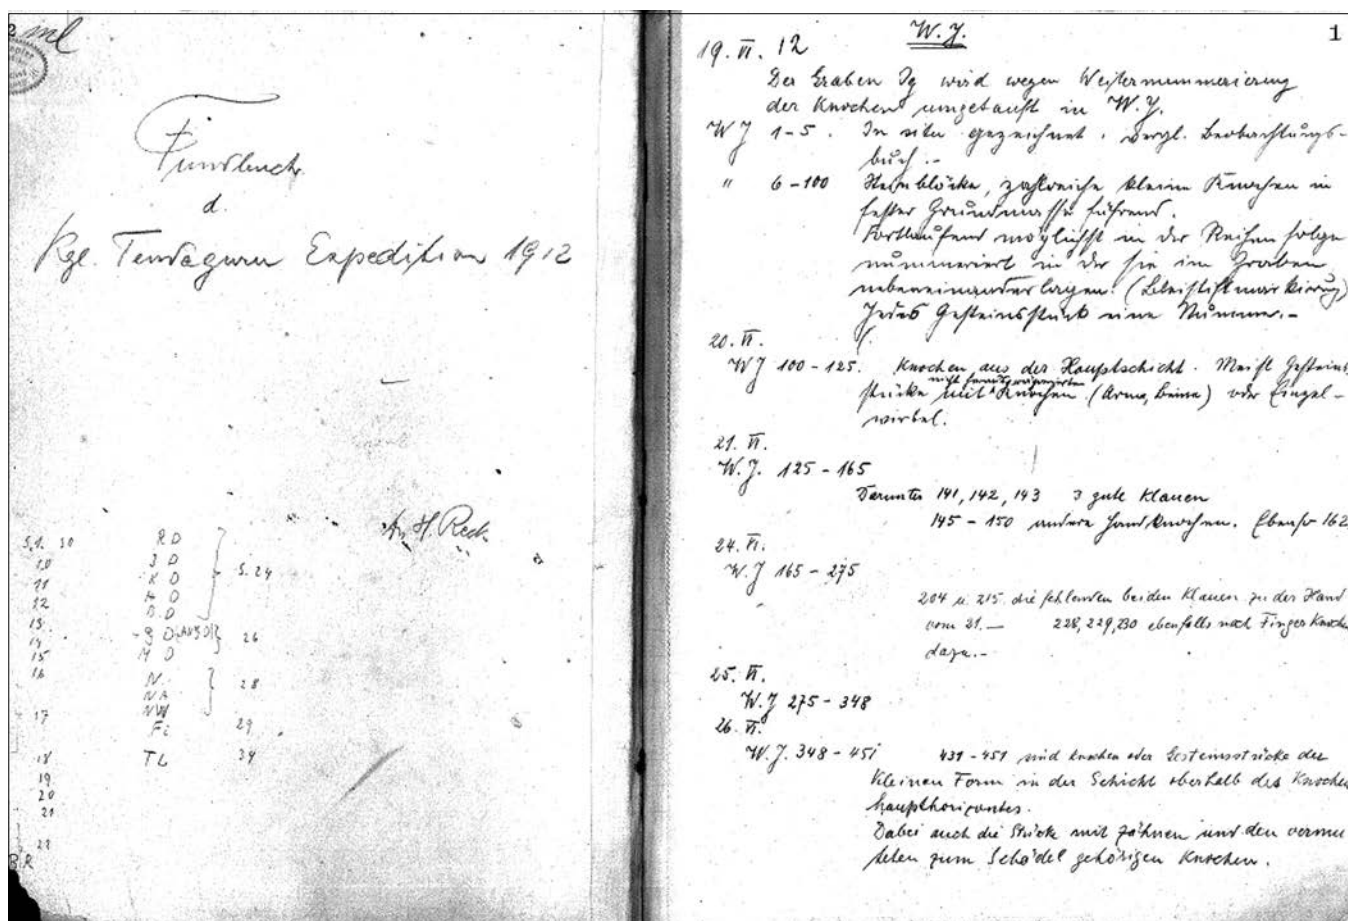 ml
Fundbuch
d.
Kgl. Tendaguru Expedition 1912
Dr H. Reck
S. 1. 10
10
11
12
13
14
15
16
17
18
19
20
21
22
R D
J D
K D
H D
B. D
S. 24
g D
26
M D
N.
NA
NW
28
Fi
29
TL
34
W. J.
1
19. VI. 12
Der Graben Ig wird wegen Weiternummerierung
der Knochen umgetauft in W. J.
W J 1-5. In situ gezeichnet. Vergl. Beobachtungs-
buch.-
" 6-100 Steinblöcke, zahlreiche kleine Knochen in
fester Grundmasse führend.
Fortlaufend möglichst in der Reihenfolge
nummeriert in der sie im Graben
nebeneinander lagen. (Bleistiftmarkierung)
Jedes Gesteinsstück eine Nummer.-
20. VI.
W J 100-125. Knochen aus der Hauptschicht. Meist Gesteins-
nicht herauspräparierten
stücke mit Knochen (Arme, Beine) oder Einzel-
wirbel.
21. VI.
W. J. 125-165
Darunter 141, 142, 143 3 gute Klauen
145-150 andere Handknochen. Ebenso 162
24. VI.
W. J 165-275
204 u. 215. die fehlenden beiden Klauen zu der Hand
vom 21.— 228, 229, 230 ebenfalls noch Finger Knoche
dazu.-
25. VI.
W. J 275-348
26. VI.
W. J. 348-451 431-451 sind Knochen oder Gesteinsstücke der
Kleinen Form in der Schicht oberhalb des Knochen
haupthorizontes.
Dabei auch die Stücke mit Zähnen und den vermu
teten zum Schädel gehörigen Knochen.